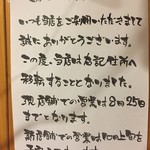 いつも当店をご利用いただきまして
誠にありがとうございます。
この度、当店は左記住所へ
移転することとなりました。
現店舗での営業は8月25日
までとなります。
新店舗での営業は10月上旬を